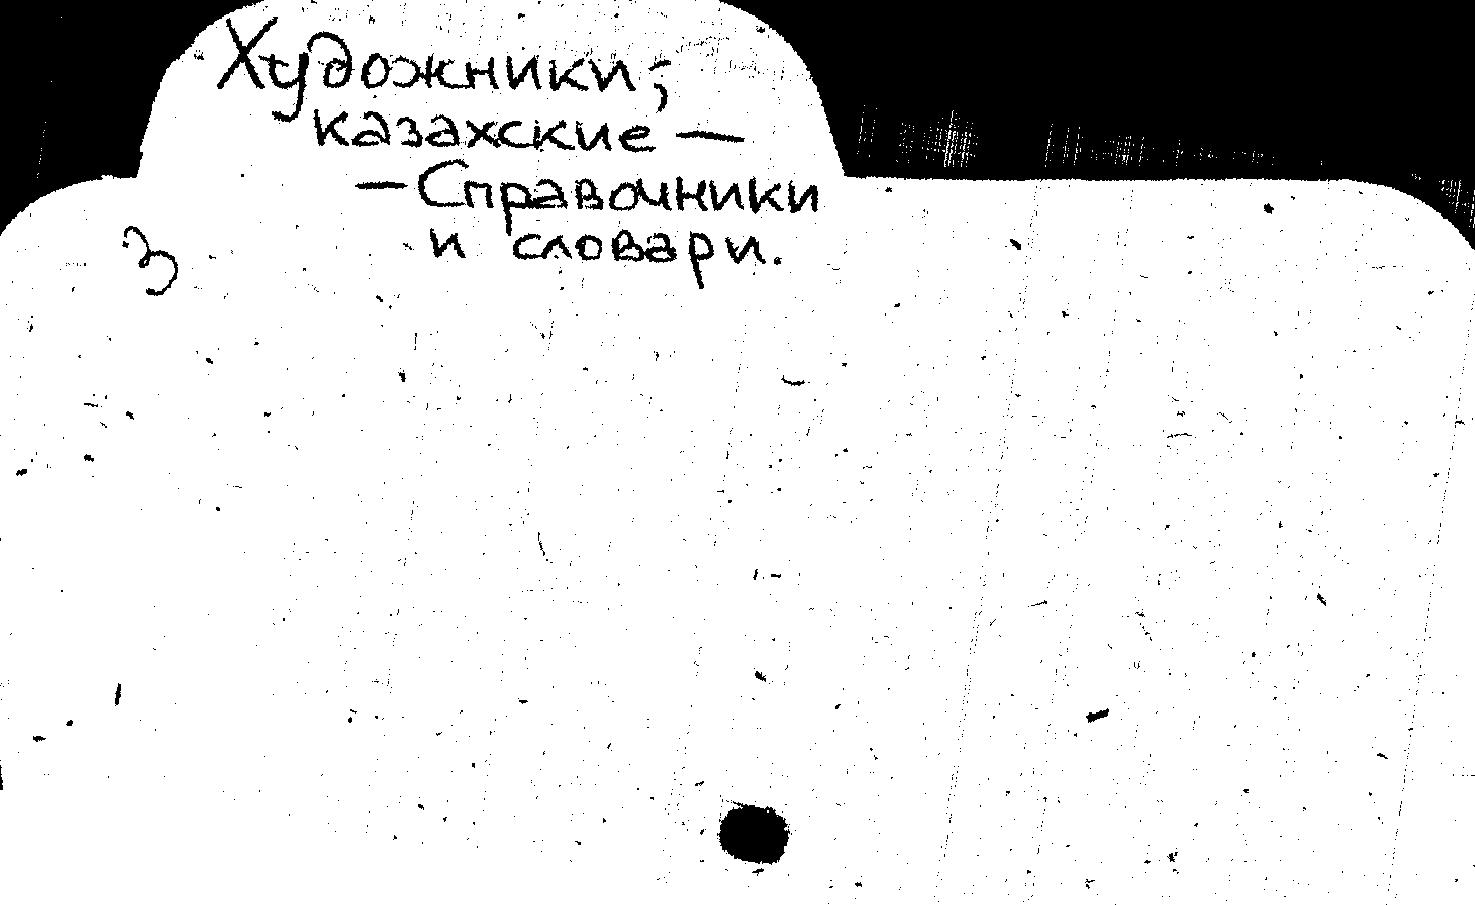 Художники,
казахские —
— Справочники
и словари.
3